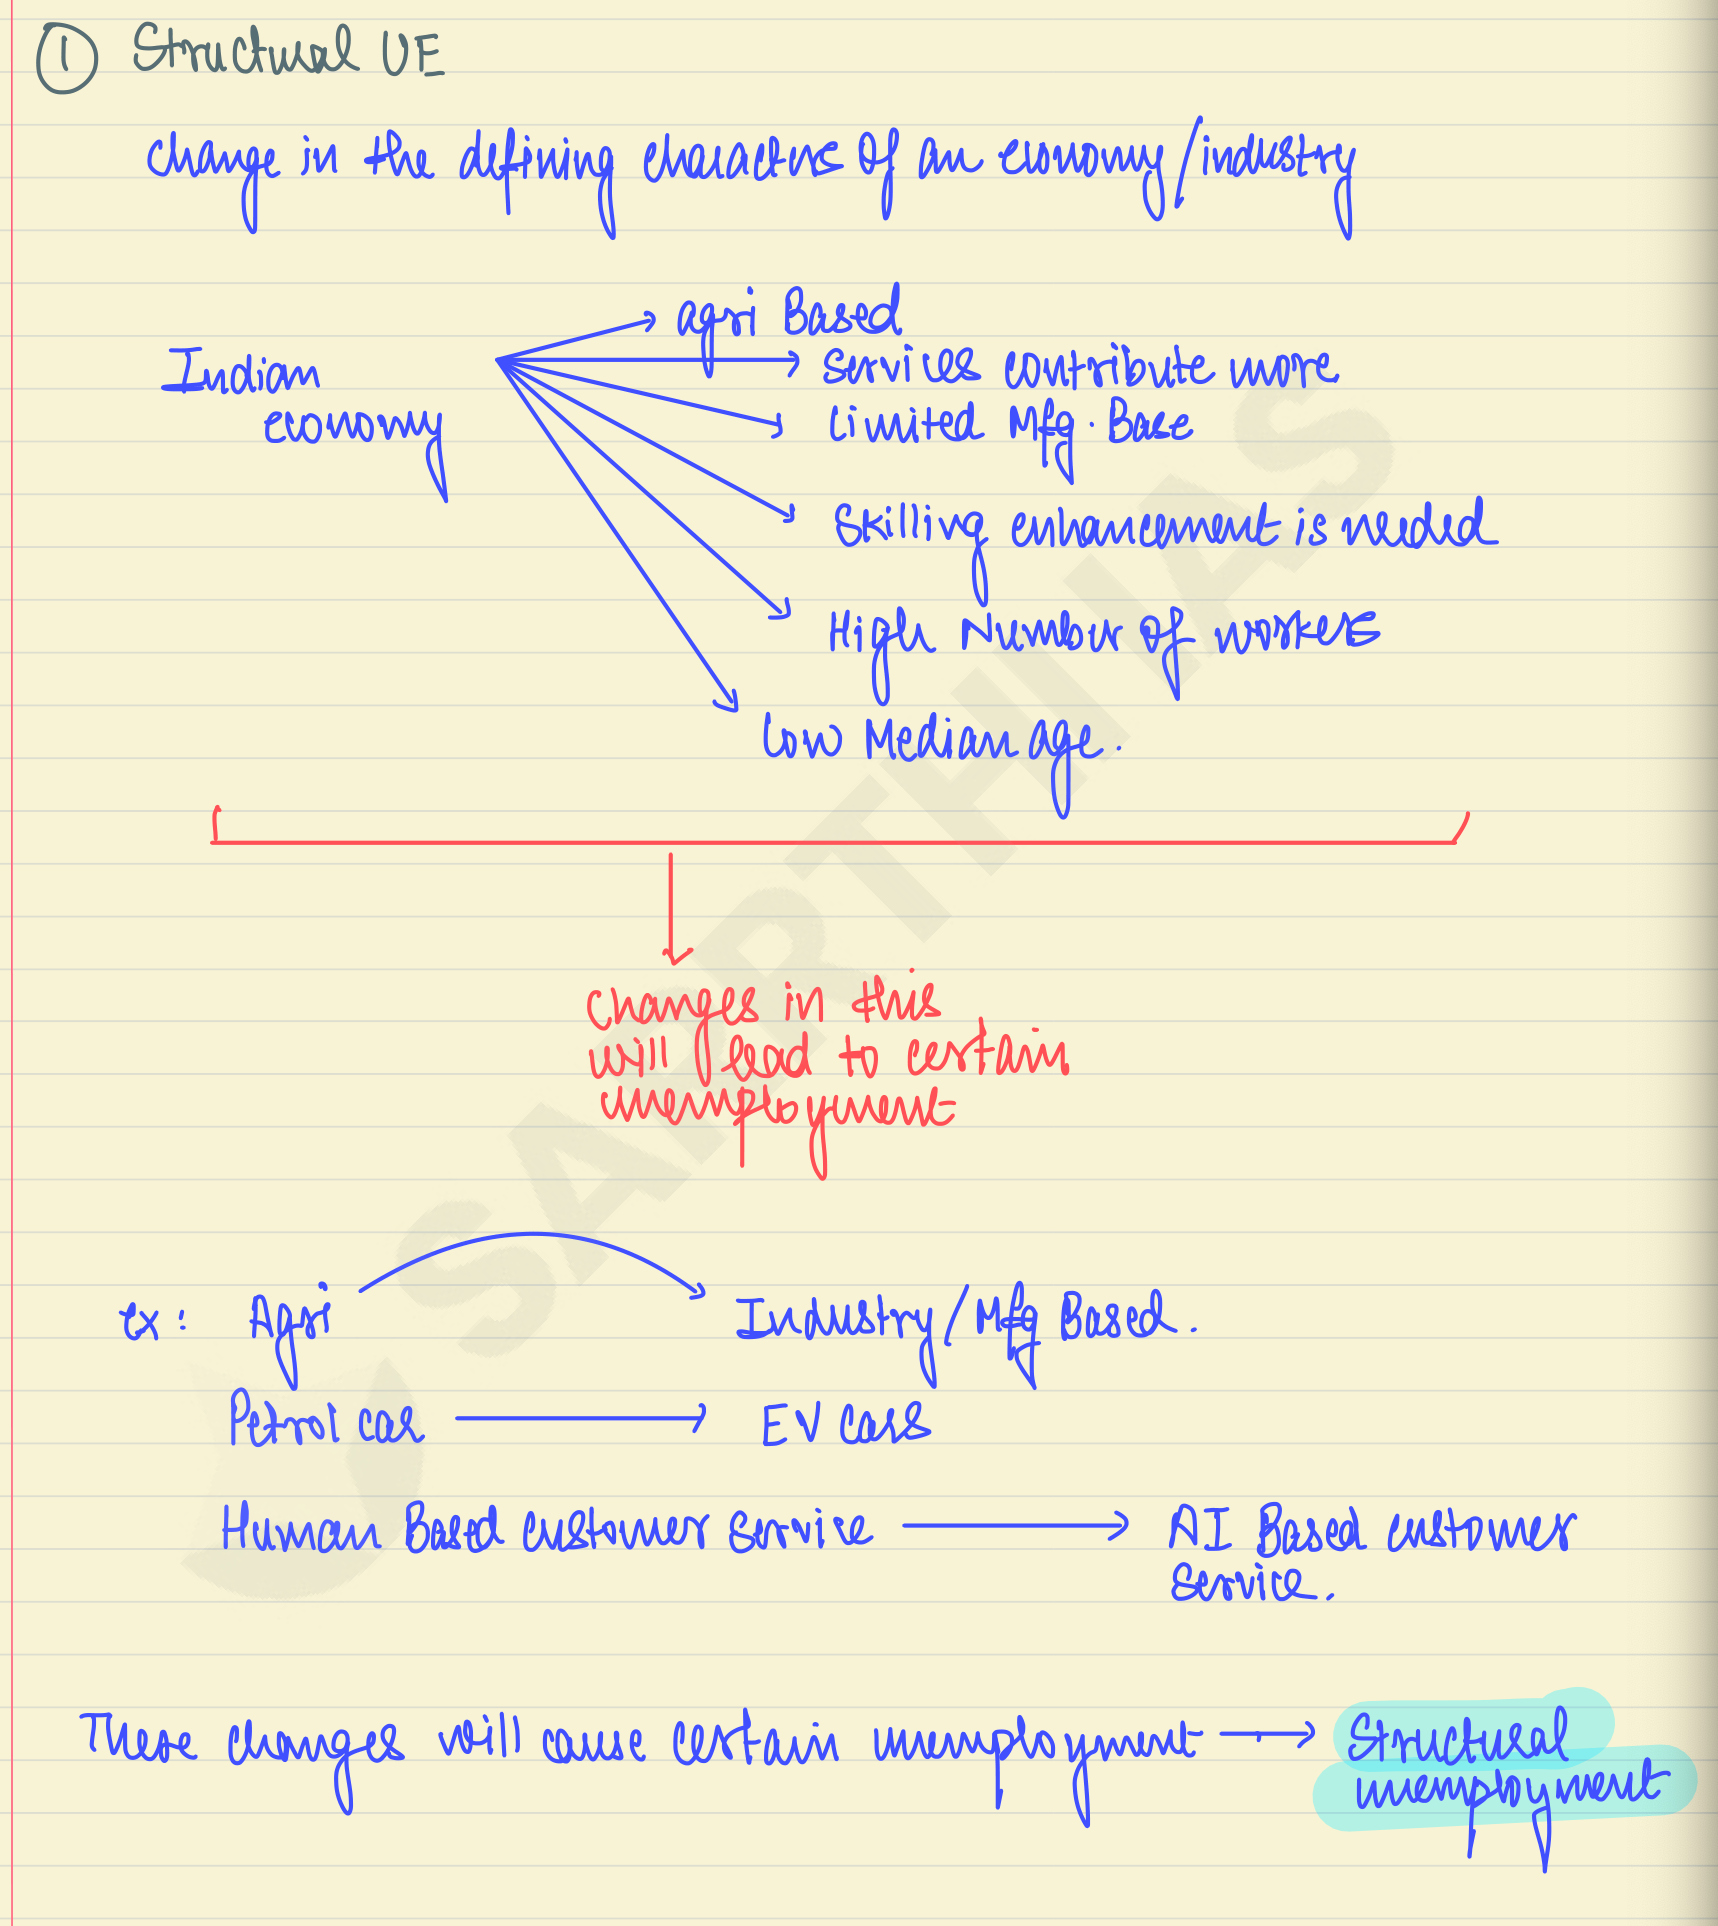 ① Structural UE
change in the defining characters of an economy/industry
agri Based
Indian
economy
services contribute more
limited Mfg. Base
Skilling enhancement is needed
High Number of workers
low Median age.
changes in this
will lead to certain
unemployment
ex: Agri
Industry/Mfg Based.
Petrol car
EV Cars
Human Based customer service
AI Based customer
service.
These changes will cause certain unemployment
Structural
unemployment
SARTHI IAS